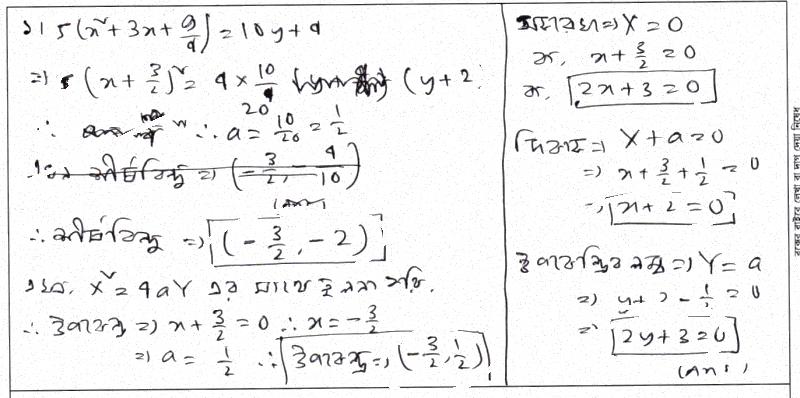 ১। 5(x² + 3x + 9/4) = 10y + 9
⇒ 5(x + 3/2)² = 4 × 10/4 (y + 2
20
∴ ∴ a = 10/20 = 1/2
(-3/2, -9/10)
(Ans)
∴ শীর্ষবিন্দু ⇒ (-3/2, -2)
এখন, X² = 4aY এর সাথে তুলনা করি.
∴ উপকেন্দ্র ⇒ x + 3/2 = 0 ∴ x = -3/2
⇒ a = 1/2 ∴ উপকেন্দ্র ⇒ (-3/2, 1/2)
অক্ষরেখা ⇒ X = 0
বা, x + 3/2 = 0
বা, 2x + 3 = 0
দিকাক্ষ ⇒ X + a = 0
⇒ x + 3/2 + 1/2 = 0
⇒ x + 2 = 0
উপকেন্দ্রিক লম্ব ⇒ Y = a
⇒ y + 2 - 1/2 = 0
⇒ 2y + 3 = 0
(Ans:)
বক্সের বাইরে লেখা বা দাগ দেয়া নিষেধ